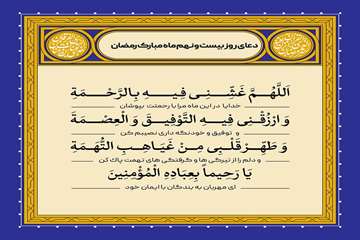 دعای روز بیست و نهم ماه مبارک رمضان
اَللّهُمَّ غَشِّنی فیهِ بِالرَّحْمَةِ
خدایا در این ماه مرا با رحمتت بپوشان
وَ ارْزُقْنی فیهِ التَّوْفیقَ وَ الْعِصْمَةَ
و توفیق و خودنگه داری نصیبم کن
وَ طَهِّرْ قَلْبی مِنْ غَیاهِبِ التُّهَمَةِ
و دلم را از تیرگی ها و گرفتگی های تهمت پاک کن
یا رَحیماً بِعِبادِهِ الْمُؤْمِنینَ
ای مهربان به بندگان با ایمان خود